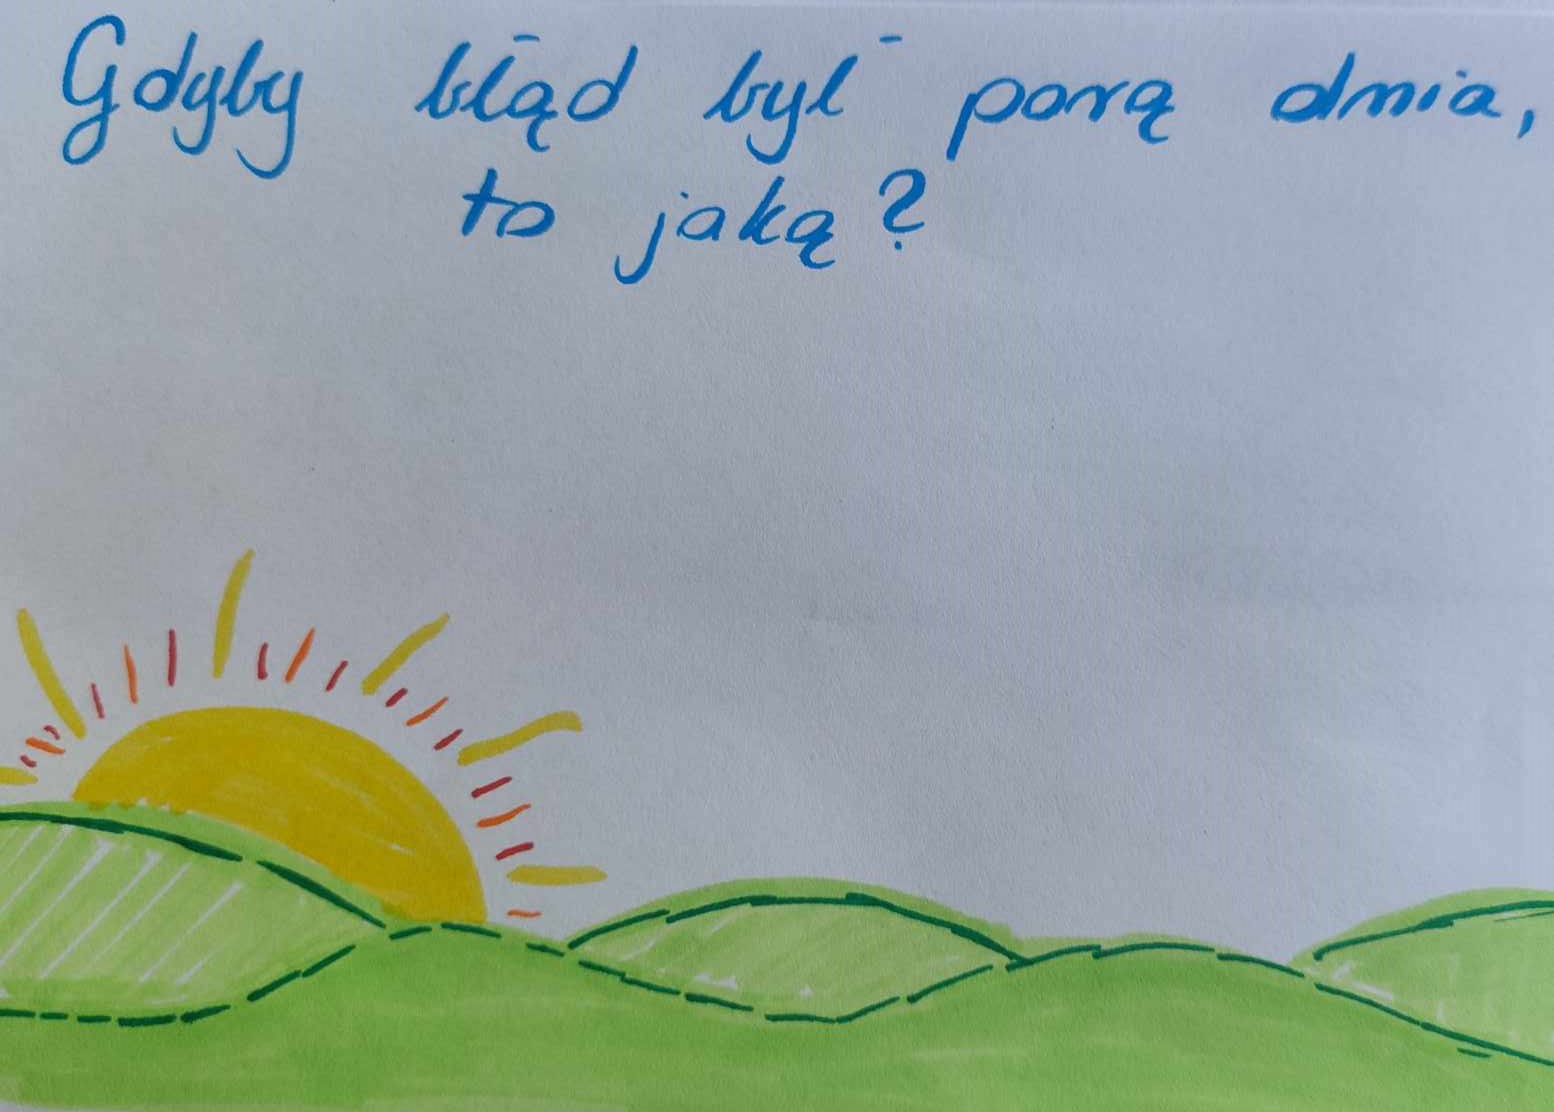 Gdyby błąd był porą dnia,
to jaką?